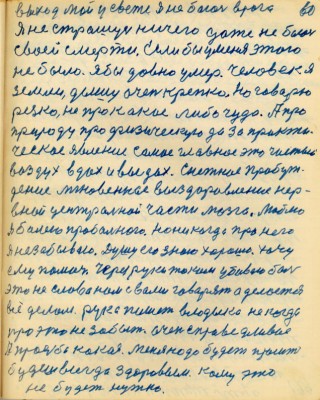 выход мой у света я не боюсь врага 60
Я не страшусь ничего даже не боюсь
своей смерти. Если бы у меня этого
не было. Я бы давно умер. Человек я
земли, дышу очен крепко. Но говорю
резко, не про какое либо чудо. А про
природу про физическую да за практи
ческое явление самое главное это чистый
воздух вдох и выдох. Снежное пробуж
дение мгновенное выздоровление нер-
вной централной части мозга.
Я болею про болного. Но никогда про него
я не забываю. Душу его знаю хорошо. хочу
ему помоч. Через руки током убиваю бол
это не слова нам с вами говорят а делается
всё делом. рука пишет владыка не когда
про это не забыт. очен справедливая
А прозба какая. Меня надо будет просит
будеш всегда здоровым. Кому это
не будет нужно.